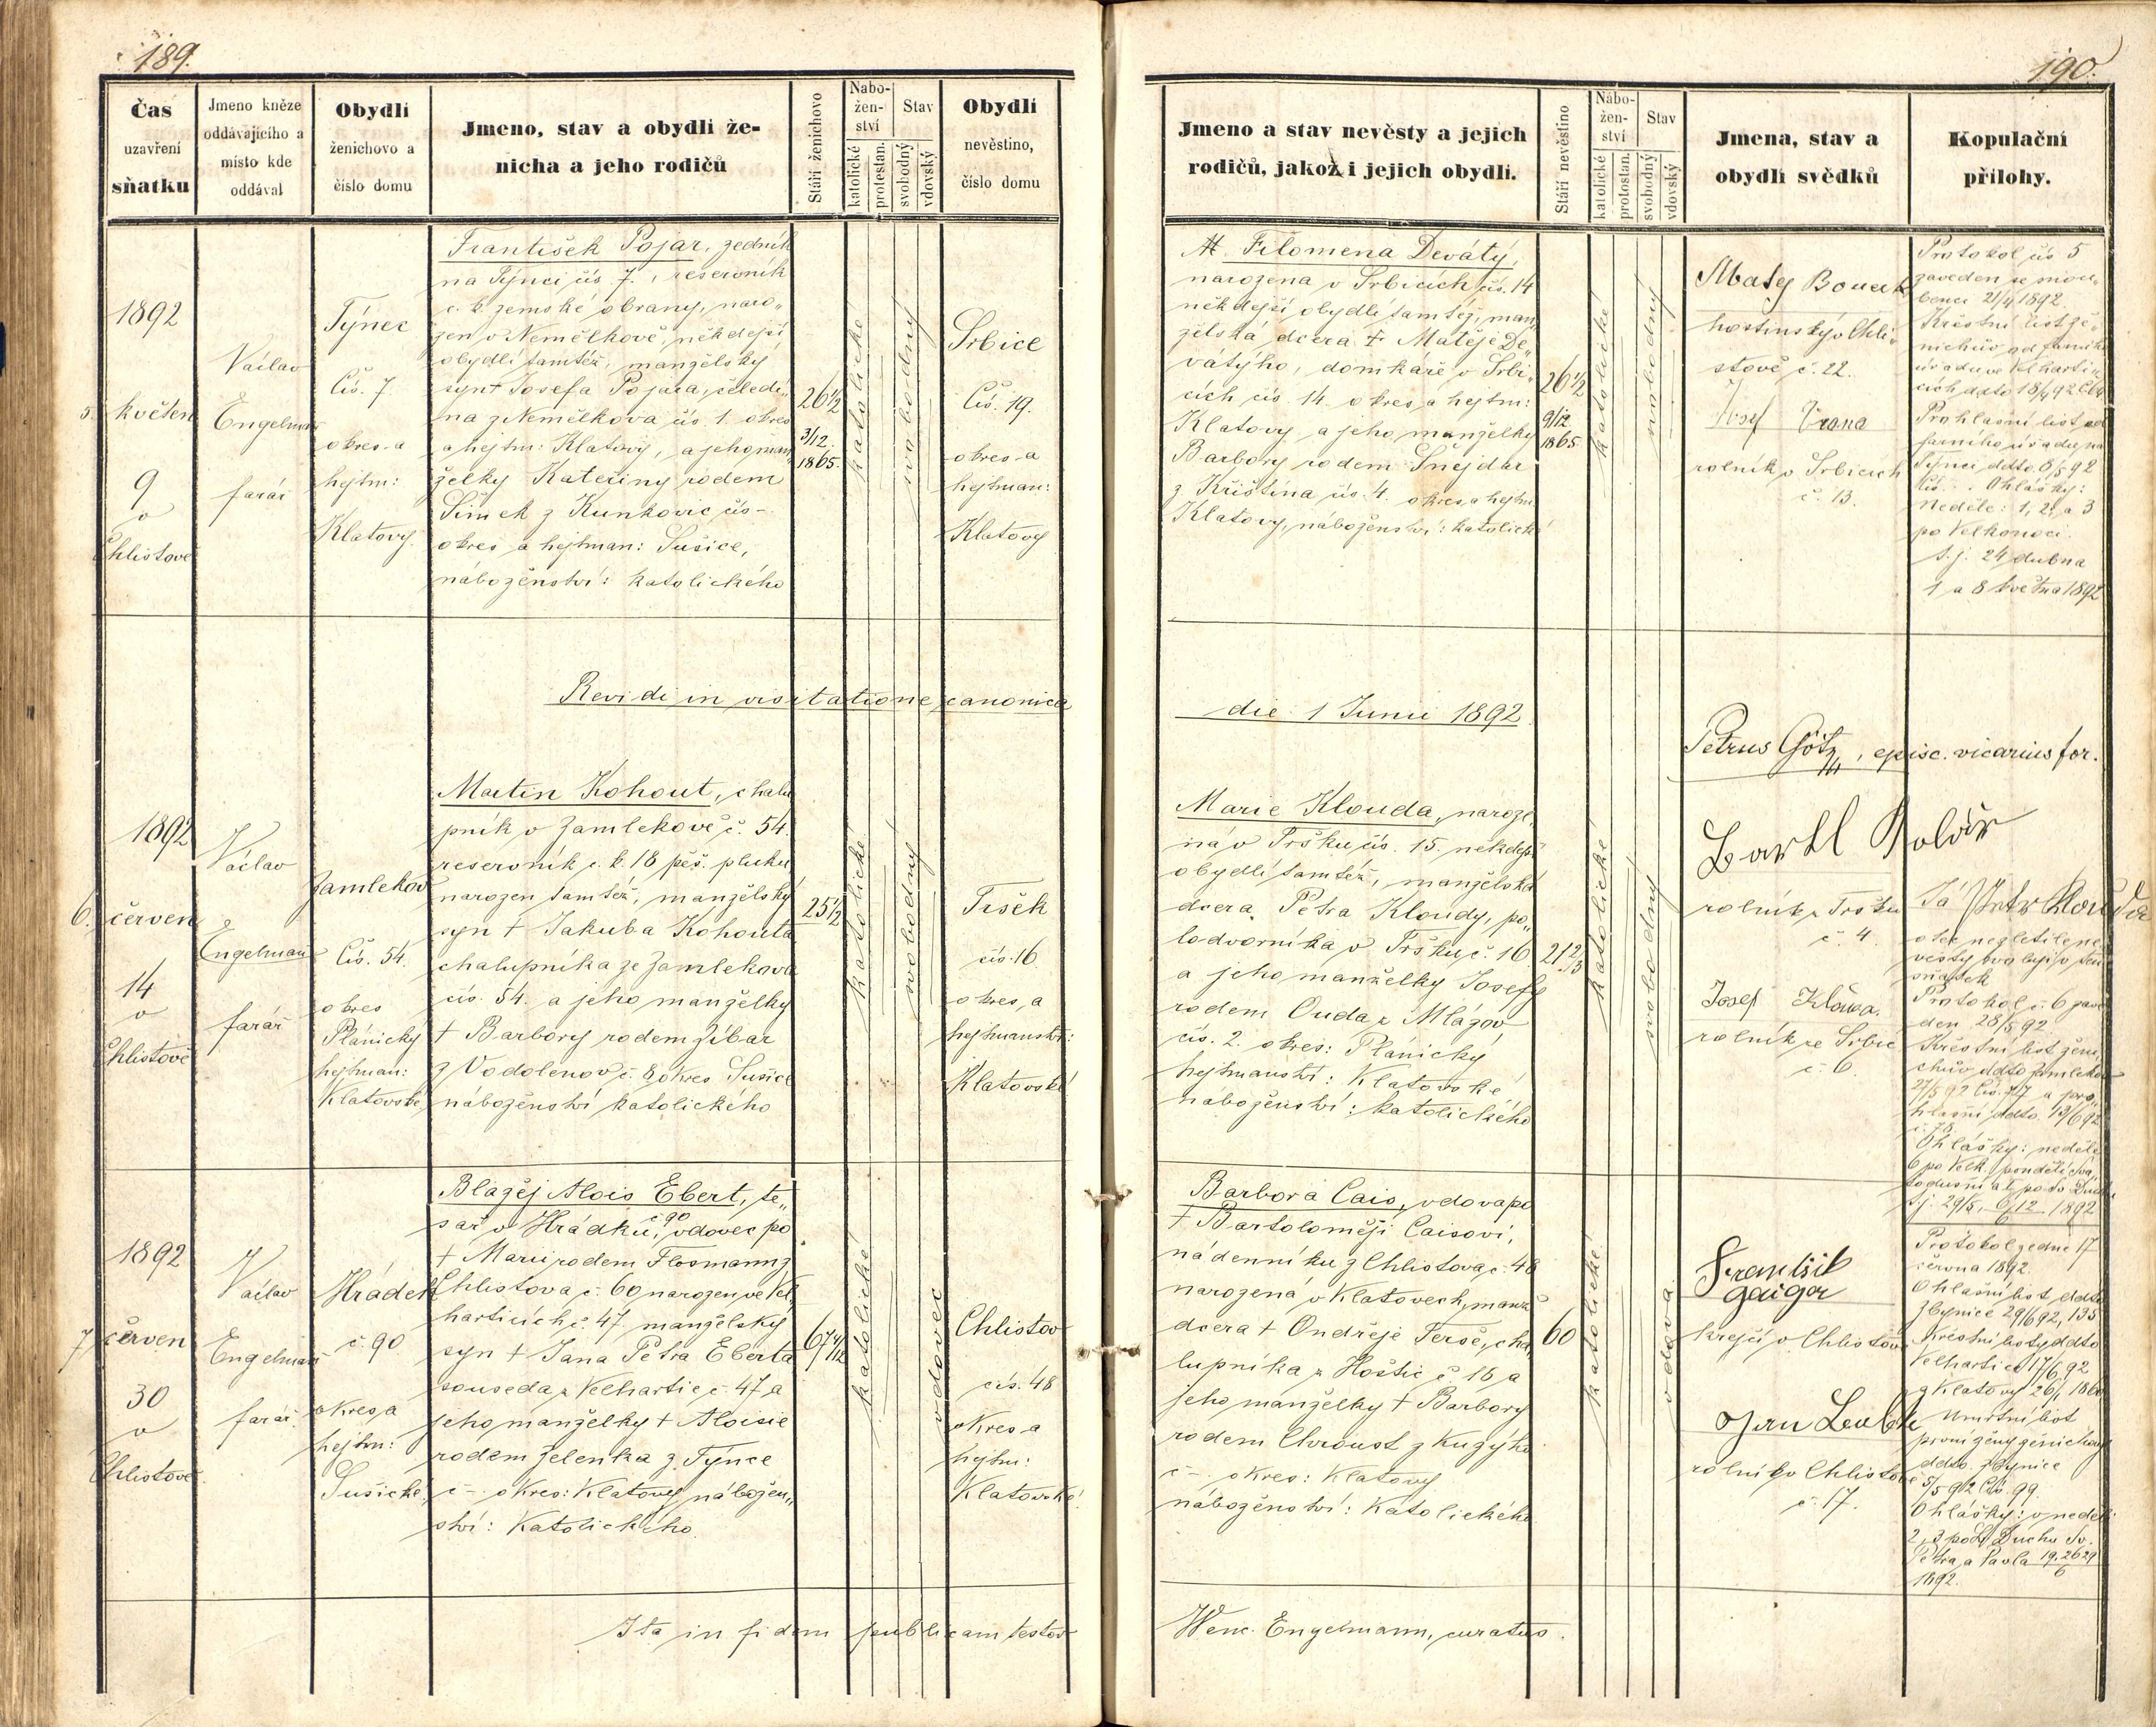 189.
Čas
uzavření
sňatku
Jmeno kněze
oddávajícího a
místo kde
oddával
Obydlí
ženichovo a
číslo domu
Jmeno, stav a obydlí že-
nicha a jeho rodičů
Stáří ženichovo
Nabo-
žen-
ství
katolické
protestan.
Stav
svobodný
vdovský
Obydlí
nevěstino,
číslo domu
1892
5. květen
9
v
Chlistově
Václav
Engelman
farář
Týnec
Čís. 7
okres a
hejtm:
Klatovy.
František Pojar, zedník
na Týnci čís 7., reservník
c. k. zemské obrany, naro„
zen v Nemělkově, někdejší
obydlí tamtéž, manželský
syn † Josefa Pojara, čeledí„
na z Nemělkova čís. 1. okres
a hejtm: Klatovy, a jeho man„
želky Kateřiny rodem
Šimek z Kunkovic čís -
okres a hejtman: Sušice,
náboženství: katolického
26 1/2
3/12.
1865.
katolické
svobodný
Srbice
Čís. 19.
okres a
hejtman:
Klatovy
Revidi in visitatione canonica
1892
6. červen
14
v
Chlistově
Václav
Engelman
farář
Zamlekov
Čís. 54.
okres
Plánický
hejtman:
Klatovské,
Martin Kohout, chalu
pník v Zamlekově č. 54.
reservník c. k. 18 pěš. pluku
narozen tamtéž, manželský
syn † Jakuba Kohouta
chalupníka ze Zamlekova
čís. 54. a jeho manželky
† Barbory rodem Zíbar
z Vodolenov č. 8 okres Sušice
náboženství katolického
25 1/2
katolické
svobodný
Tršek
čís. 16
okres, a
hejtmanství:
Klatovské
1892
7. červen
30
v
Chlistově.
Václav
Engelman
farář
Hrádek
č. 90
okres, a
hejtm:
Sušické.
Blažěj Alois Ebert, te„
sař v Hrádku, č 90 vdovec po
† Marii rodem Flosmann z
Chlistova č. 60 narozen ve Vel„
harticích č. 47. manželský
syn † Jana Petra Eberta
souseda z Velhartic č. 47 a
jeho manželky † Aloisie
rodem Zelenka z Týnce
č -. okres: Klatovy nábožen„
ství: Katolického
67 4/12
katolické
vdovec
Chlistov
čís. 48
okres a
hejtm:
Klatovské.
Ita in fidem publicam testor
190.
Jmeno a stav nevěsty a jejich
rodičů, jakož i jejich obydlí.
Stáří nevěstino
Nábo-
žen-
ství
katolické
protostan.
Stav
svobodný
vdovský
Jmena, stav a
obydlí svědků
Kopulační
přílohy.
M. Filomena Deváty,
narozena v Srbicích čís. 14
někdejší obydlí tamtéž, man„
želská dcera † Matěje De„
vátýho, domkáře v Srbi„
cích čís. 14. okres, a hejtm:
Klatovy a jeho manželky
Barbory rodem Šnejdar
z Křištína čís. 4. okres, a hejtm
Klatovy, náboženství: katolické
26 1/2
9/12
1865.
katolické
svobodný
hostinský v Chli„
stově č. 22.
Josef Vrana
rolník v Srbicích
č. 13.
Protokol čís 5
zaveden se snou„
benci 21/4 1892.
Křestní list že„
nichův od farního
úřadu ve Velharti„
cích ddto 18/4 92
Prohlašní list od
farního úřadu na
Týnci ddto. 8/5 92
Čís. -. Ohlášky:
Neděle: 1, 2, a 3
po Velkonoci.
t. j. 24 dubna
1 a 8 května 1892
die 1 Junii 1892.
Petrus Götz, episc. vicarius for.
Marie Klouda, naroze„
ná v Tršku čís. 15. někdejší
obydlí tamtéž, manželská
dcera Petra Kloudy, po„
lodvorníka v Tršku č. 16
a jeho manželky Josefy
rodem Ouda z Mlágov
čís. 2. okres: Plánický
hejtmanství: Klatovské
náboženství: katolického
21 2/3
katolické
svobodný
Bartl Kolář
rolník z Tršku
č. 4.
Josef
rolník ze Srbic
č. 6.
Já Petr Klouda
otec nezletilé ne„
věsty svoluji v ten
sňatek
Protokol č. 6 zave
den 28/5 92
Křestní list ženi„
chův ddto Zamlekov
27/5 92 Čís. 77 a pro„
hlašní ddto. 13/6 92
č. 78.
Ohlášky: neděle
6 po Velk. pondělí Sva
todušní a 1. po Sv. Duchu
t. j. 29/5, 6, 12/6 1892
Barbora Cais, vdova po
† Bartoloměji Caisovi,
nádenníku z Chlistova, č. 48
narozená v Klatovech, manž
dcera † Ondřeje Terše, cha„
lupníka z Hoštic č 16 a
jeho manželky † Barbory
rodem Chroust z Kugýho
č -. okres: Klatovy
náboženství: Katolického
60
katolické
vdova
František
Gaigr
krejčí v Chlistově
Jan
rolník v Chlistově
č. 17.
Protokol zedne 17
června 1892.
Ohlašní list ddto
Zbynice 29/6 92, 135
Křestní listy ddto
Velhartice 17/6 92
z Klatovy 26/1 1860
Úmrtní list
první ženy ženichovy
ddto. Zbynice
5/5 92 Čís. 99.
Ohlášky: v neděli
2, 3 po S. Duchu Sv.
Petra, a Pavla 19, 26, 29/6
1892.
Wenc. Engelmann, curatus.